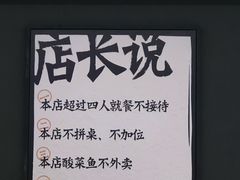 店长说
一
本店超过四人就餐不接待
二
本店不拼桌、不加位
三
本店酸菜鱼不外卖